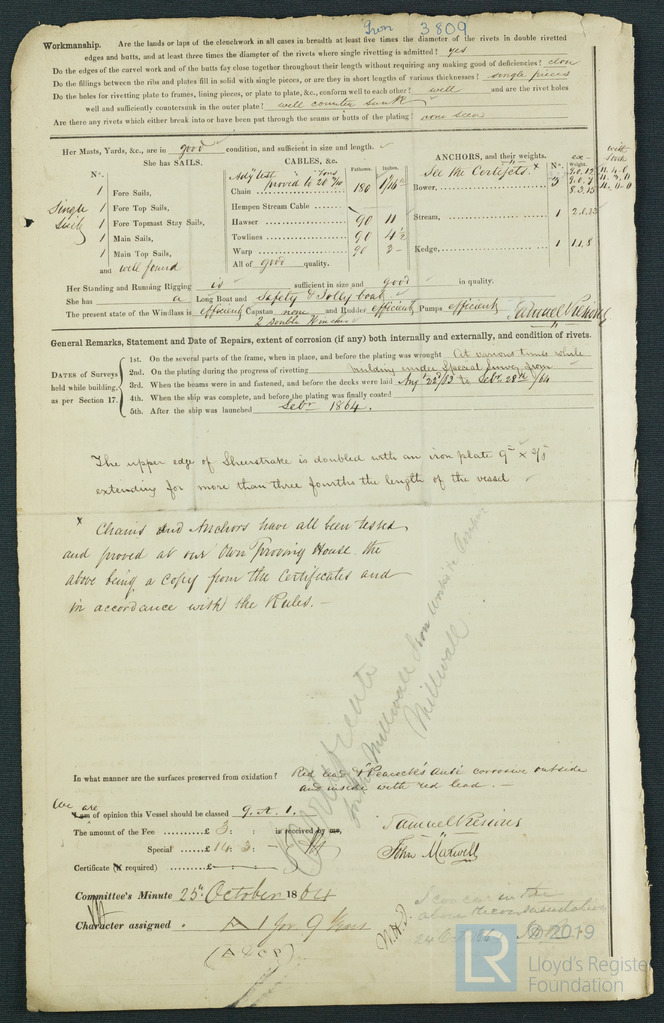 Iron 3809
Workmanship. Are the lands or laps of the clenchwork in all cases in breadth at least five times the diameter of the rivets in double rivetted
edges and butts, and at least three times the diameter of the rivets where single rivetting is admitted? yes
Do the edges of the carvel work and of the butts fay close together throughout their length without requiring any making good of deficiencies?
Do the fillings between the ribs and plates fill in solid with single pieces, or are they in short lengths of various thicknesses? single pieces
Do the holes for rivetting plate to frames, lining pieces, or plate to plate, &c., conform well to each other? well and are the rivet holes
well and sufficiently countersunk in the outer plate? well counter sunk
Are there any rivets which either break into or have been put through the seams or butts of the plating? none seen
Her Masts, Yards, &c., are in good condition, and sufficient in size and length.
She has SAILS. CABLES, &c. ANCHORS, and their weights.
N°. Fathoms. Inches. N°. Weight.
proved to 20 See the Certifcts. x
1 Fore Sails, Chain 180 Bower, 3
Single 1 Fore Top Sails, Hempen Stream Cable
1 Fore Topmast Stay Sails, Hawser 90 11 Stream, 1
1 Main Sails, Towlines 90 4½
1 Main Top Sails, Warp 90 Kedge, 1 1.1.8
and well found All of good quality.
Her Standing and Running Rigging is sufficient in size and good in quality.
She has a Long Boat and Safety & Jolly boat
The present state of the Windlass is efficient Capstan none and Rudder efficient Pumps efficient
2 Double Winches
General Remarks, Statement and Date of Repairs, extent of corrosion (if any) both internally and externally, and condition of rivets.
DATES of Surveys held while building, as per Section 17.
1st. On the several parts of the frame, when in place, and before the plating was wrought At various times while
2nd. On the plating during the progress of rivetting building under Special Survey from
3rd. When the beams were in and fastened, and before the decks were laid
4th. When the ship was complete, and before the plating was finally coated
5th. After the ship was launched Sebr 1864.
The upper edge of Sheerstrake is doubled with an iron plate
extending for more than three fourths the length of the vessel
x Chains and Anchors have all been tested
and proved at our Own Proving House the
above being a Copy from the Certificates and
in accordance with the Rules. –
Certificate
Millwall Iron
Millwall
In what manner are the surfaces preserved from oxidation? Red lead & Peacock's anti corrosive outside
and inside with red lead. –
We are
I am of opinion this Vessel should be classed 9. A. 1.
The amount of the Fee ..........£ 3: : is received by me,
Special ....£ 14: 3: –
Certificate (if required) ..........£
John Maxwell
Committee's Minute 25th October 1864
Character assigned A 1 for 9 Years
(A & C P)
24
© 2019
LR
Lloyd's Register
Foundation